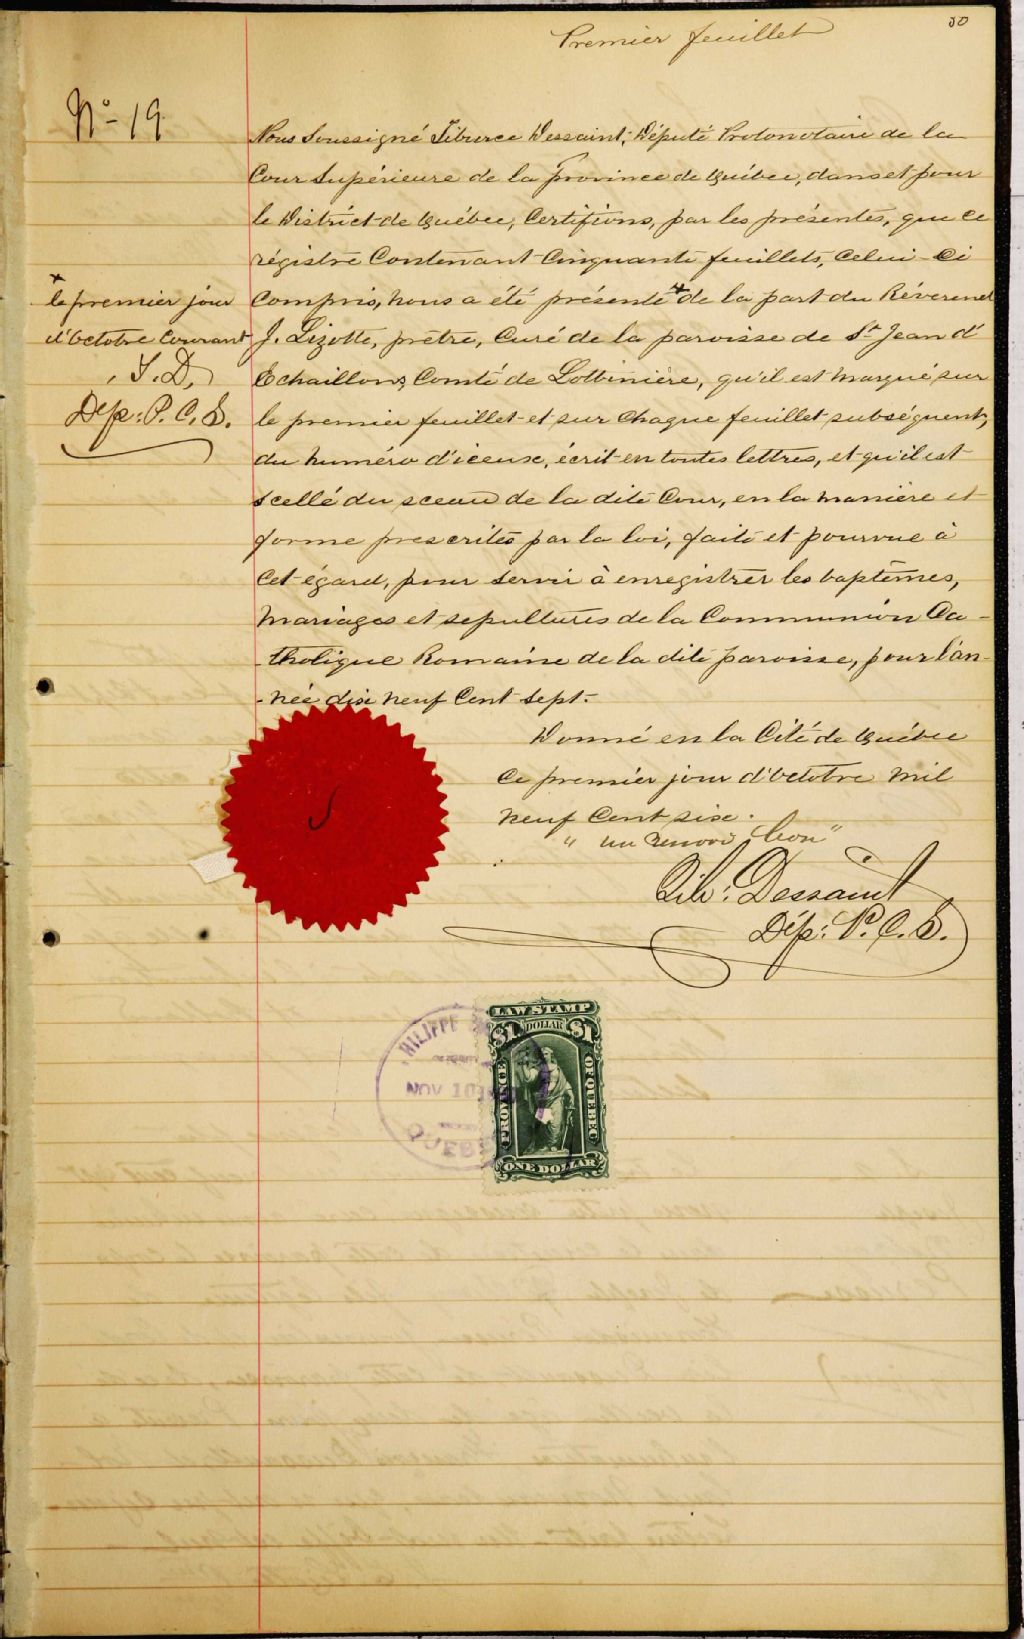 50
Premier feuillet
No - 19
Nous Soussigné Tiburce Dessaint, Député Protonotaire de la
Cour Supérieure de la Province de Québec, dans et pour
le District de Québec, Certifions, par les présentes, que ce
régistre Contenant Cinquante feuillets, Celui-Ci
Compris, nous a été présenté + de la part du Réverend
+
le premier jour
d'Octobre Courant
T. D.
Dép: P. C. S.
J. Lizotte, prêtre, Curé de la paroisse de St Jean d'
Echaillons, Comté de Lotbinière, qu'il est marqué sur
le premier feuillet et sur Chaque feuillet subséquent,
du numéro d'iceux, écrit en toutes lettres, et qu'il est
scellé du sceau de la dite Cour, en la manière et
forme prescrites par la loi, faite et pourvue à
Cet égard, pour servir à enregistrer les baptêmes,
Mariages et sepultures de la Communion Ca-
-tholique Romaine de la dite paroisse, pour l'an-
-née dix neuf Cent sept.
Donné en la Cité de Québec
Ce premier jour d'Octobre Mil
neuf Cent six.
" un renvoi bon "
Tib: Dessaint
Dép: P. C. S.
LAW STAMP
$1 DOLLAR $1
PROVINCE OF QUEBEC
ONE DOLLAR
NOV 10
QUEBEC